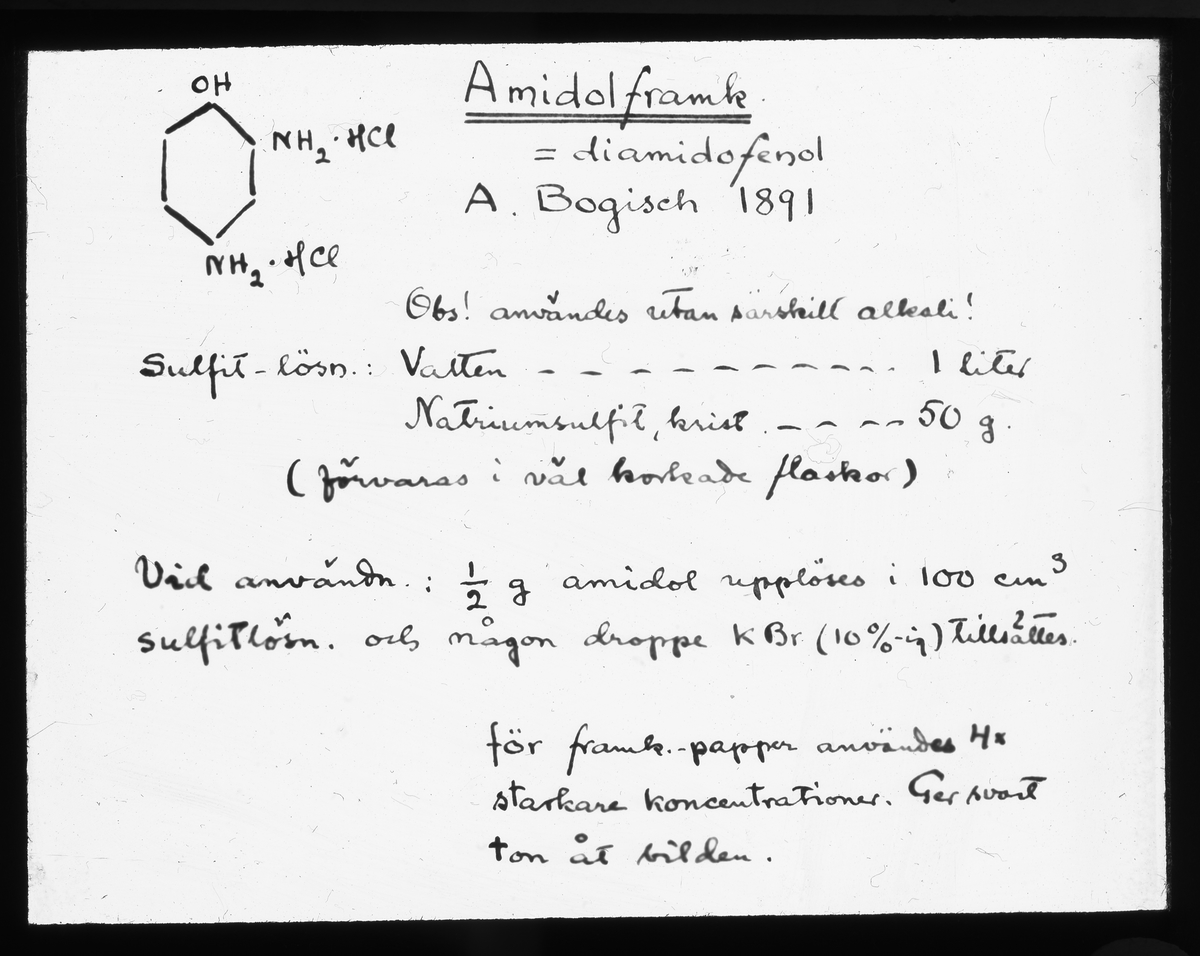 OH
NH2·HCl
NH2·HCl
Amidolframk.
= diamidofenol
A. Bogisch 1891
Obs! användes utan särskilt alkali!
Sulfit-lösn.: Vatten - - - - - - - - - - - 1 liter
Natriumsulfit, krist. - - - - 50 g.
(förvaras i väl korkade flaskor)
Vid användn.: 1/2 g amidol upplöses i 100 cm³
sulfitlösn. och någon droppe KBr (10%-ig) tillsättes.
för framk.-papper användes 4x
starkare koncentrationer. Ger svart
ton åt bilden.